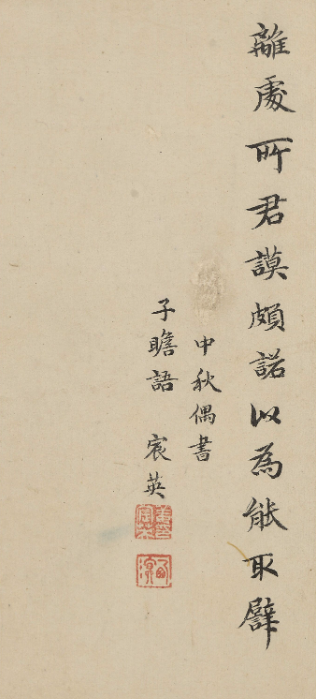 離處所君謨頗諾以為能取譬
中秋偶書
子瞻語 宸英